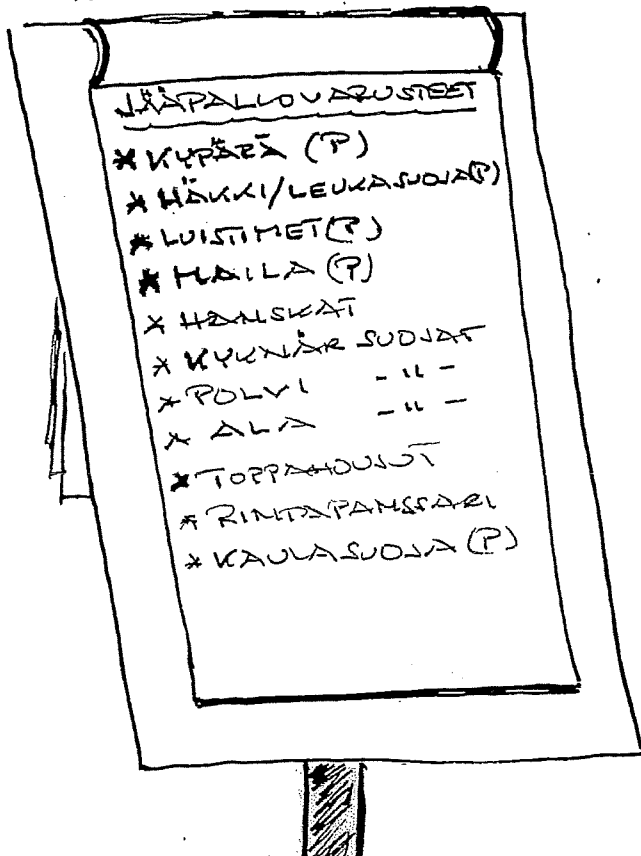 JÄÄPALLOVARUSTEET
* KYPÄRÄ (P)
* HÄKKI/LEUKASUOJA(P)
* LUISTIMET(P)
* MAILA (P)
* HANSKAT
* KYKNÄR SUOJAT
* POLVI - " -
* ALA - " -
* TOPPAHOUSUT
* RINTAPANSSARI
* KAULASUOJA (P)